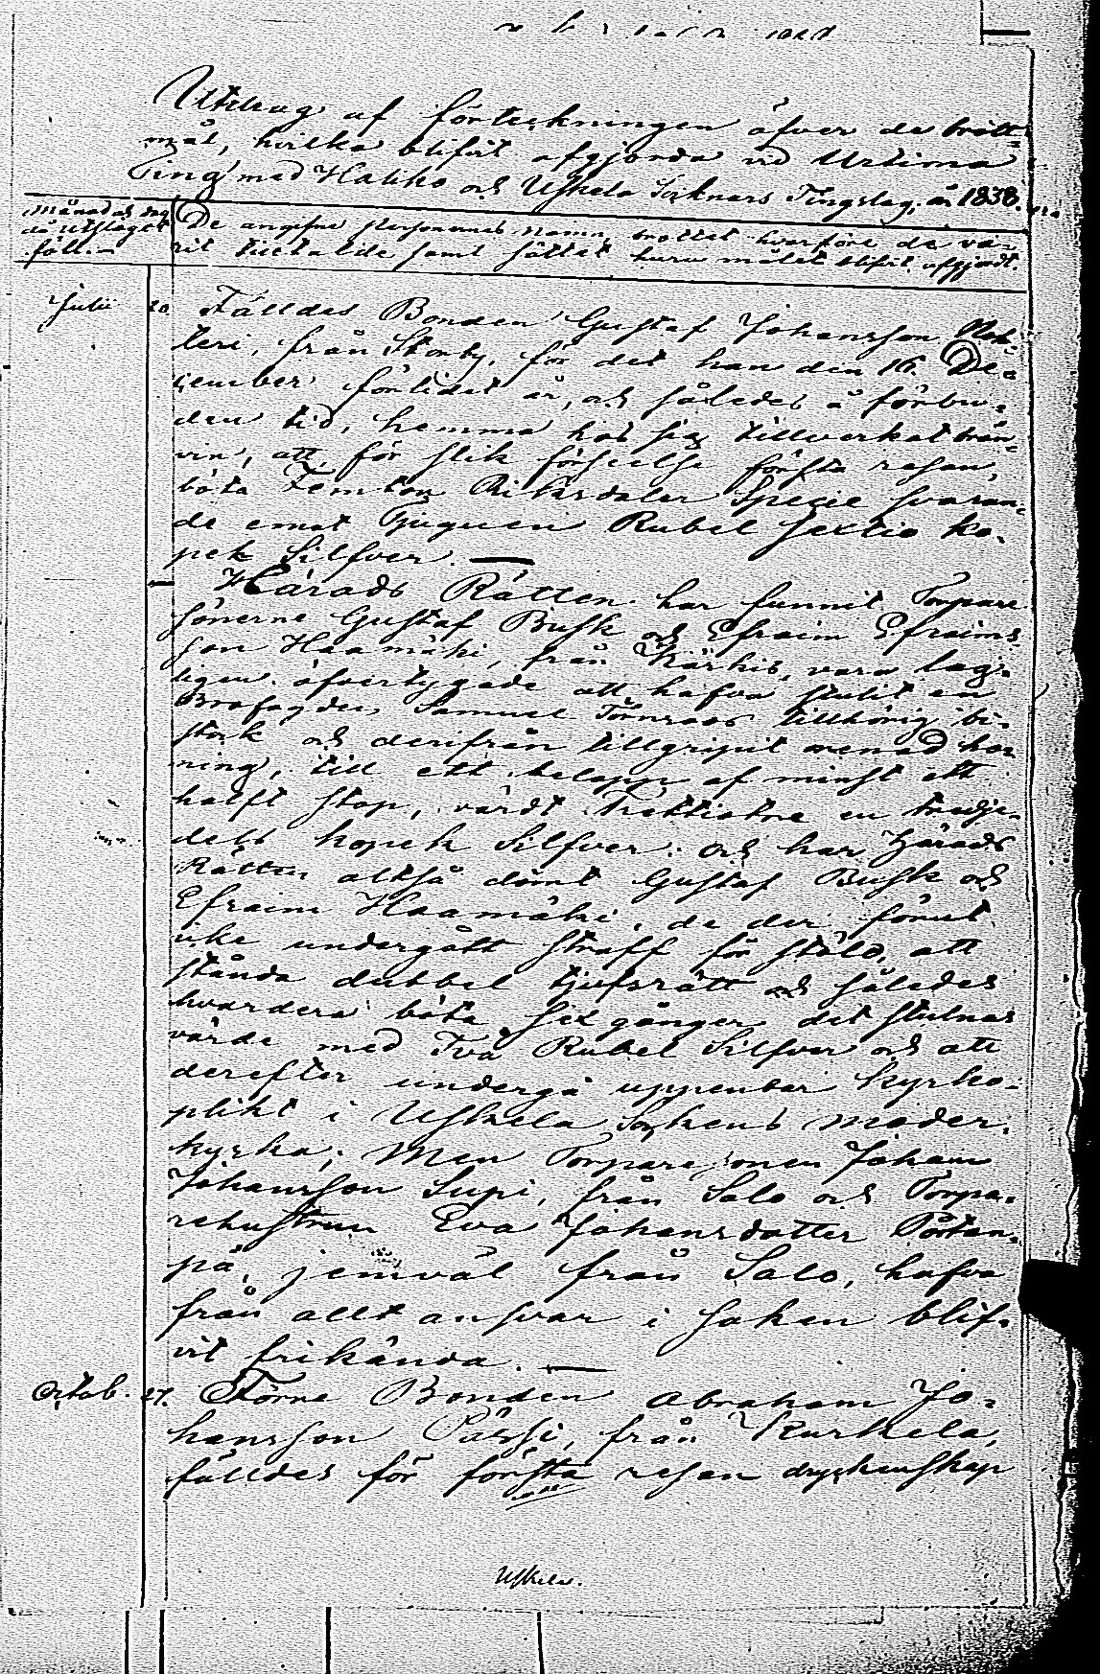 Utdrag af förteckningen öfver de brott-
mål, hvilka blifvit afgjorda vid Urtima
Ting med Haliko och Uskela Soknars Tingslag, år 1838.
Månad och dag
då utslaget
föll.-
De angifne personernes namn, brottet hvarföre de va-
rit tilltalde samt sättet huru målet blifvit afgjordt.
Julii 20. Fälldes Bonden Gustaf Johansson
teri, från Stenby, för det han den 16. De-
cember förlidet år, och således å förbu-
den tid, hemma hos sig tillverkat brän-
vin, att för slik förseelse första resan
böta Femton Riksdaler Specie svaran-
de emot Tjugueen Rubel sextio ko-
pek Silfver. —
Härads Rätten har funnit Torpare
sönerne Gustaf Busk och Efraim Efraims
son Haamäki, från Kärkis, vara lag-
ligen öfvertygade att hafva stulit en
Brofogden Samuel Törnroos tillhörig bi-
stock och derifrån tillgripit honing,
ning, till ett belopp af minst ett
halft stop, värdt Trettiotre en tredje-
dels kopek Silfver; och har Härads
Rätten altså dömt Gustaf Busk och
Efraim Haamäki, de der förut
icke undergått straff för stöld, att
stånda dubbel tjufsrätt och således
hvardera böta sex gånger det stulnas
värde med Två Rubel Silfver och att
derefter undergå uppenbar kyrko-
plikt i Uskela Sokens moder-
kyrka; Men Torparesonen Johan
Johansson Supi, från Salo och Torpa-
rehustrun Eva Johansdotter
pä, jemväl från Salo, hafva
från allt ansvar i saken blif-
vit frikända. —
Octob. 27. Förne Bonden Abraham Jo-
hansson Pärssi, från Kurkela,
fälldes för första resan dryckenskap
Uskela.